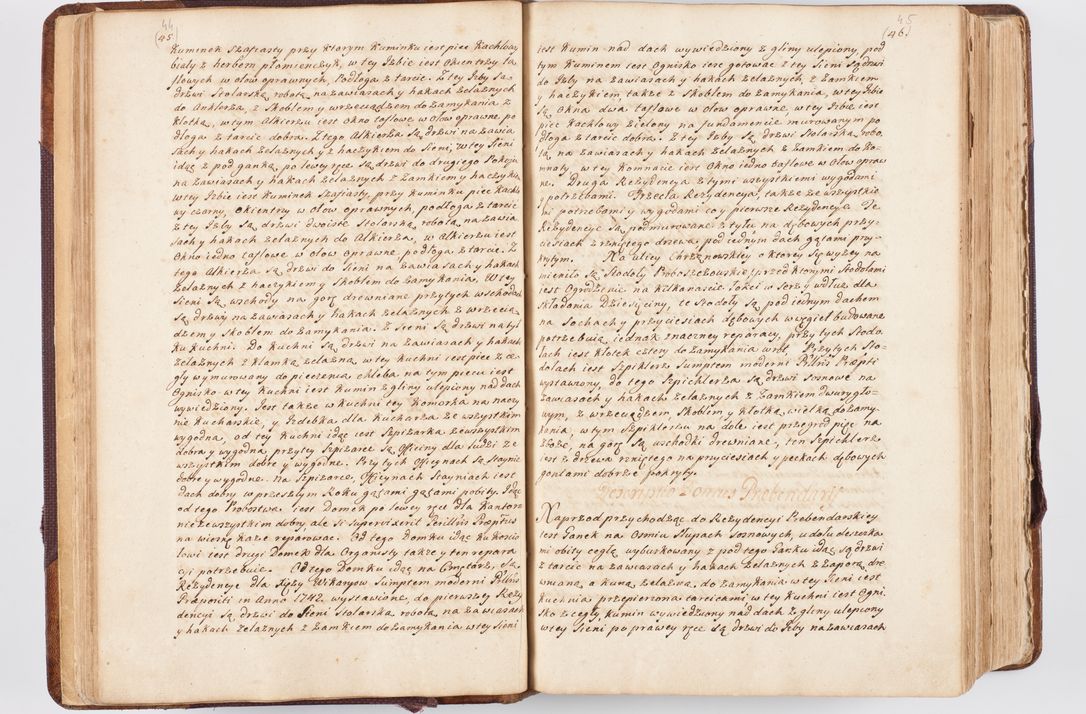 44
(45)
Kuminek Szafiasty przy ktorym Kuminku iest piec Kachlowy
biały z herbem płomieńczyk, w tey Izbie iest Okien trzy ta
flowych w ołow oprawnych, Podłoga z tarcic. Z tey Izby Są
drzwi Stolarską robotą na zawiasach y hakach żelaznych
do Anklerza, z Skoblem y wrzeciądzem do zamykania z
Klotką, w tym Alkierzu iest Okno taflowe w ołow oprawne, po
dłoga z tarcic dobra. Z tego Alkierza Są drzwi na zawia
sach y hakach żelaznych y z haczykiem do Sieni, w tey Sieni
idąc z pod ganku po lewey ręce Są drzwi do drugiego Pokoju
na Zawiasach y hakach żelaznych z Zamkiem y haczykiem
w tey Izbie iest Kuminek Szafiasty, przy Kuminku piec Kachlo
wy czarny, Okien trzy w ołow oprawnych, podłoga z tarcic
z tey Izby Są drzwi dwoiste Stolarską robotą na zawia
sach y hakach żelaznych do Alkierza, w Alkierzu iest
Okno iedno taflowe w ołow oprawne, podłoga z tarcic. Z
tego Alkierza Są drzwi do Sieni na zawiasach y hakach
żelaznych z haczykiem y Skoblem do zamykania. W tey
Sieni Są wschody na gorę drewniane przy tych wschodach
Są drzwi na zawiasach y hakach żelaznych z wrzecią
dzem y Skoblem do zamykania. Z Sieni Są drzwi na tył
ku Kuchni. Do Kuchni Są drzwi na zawiasach y hakach
żelaznych z Klamką żelazną w tey Kuchni iest piec z ce
gły wymurowany do pieczenia chleba, na tym piecu iest
Ognisko w tey Kuchni iest Kumin z gliny ulepiony nad dach
wywiedziony. Iest także w Kuchni tey Komorka na naczy
nie Kucharskie, y Izdebka dla Kucharza ze wszystkim
wygodna, od tey Kuchni idąc iest Szpiżarka ze wszystkim
dobra y wygodna przy tey Szpiżarce Są Officiny dla ludzi ze
wszystkim dobre y wygodne. Przy tych Officynach Są Staynie
dobre y wygodne. Na Szpiżarce, Officynach Stayniach iest
dach dobry w przeszłym Roku gątami gątami pobity. Idąc
od tego Probostwa iest Domek po lewey ręce dla Kantora
nie ze wszystkim dobry, ale Si Supervixerit Perillris Præptus
na wiosnę każe reparować. Od tego Domku idąc ku Koscio
łowi iest drugi Domek dla Organisty także y ten repara
cyi potrzebuie. Od tego Domku idąc na Cmętarz, Są
Rezydencye dla Xięży Wikaryow Sumptem moderni Pllris
Præpositi in Anno 1742 wystawione, do pierwszey Rezy
dencyi Są drzwi do Sieni Stolarską robotą, na zawiasach
y hakach żelaznych z Zamkiem do zamykania w tey Sieni
45
(46)
iest Kumin nad dach wywiedziony z gliny ulepiony, pod
tym Kuminem iest Ognisko iesc gotować z tey Sieni Są drzwi
do Izby na zawiasach y hakach żelaznych, z Zamkiem
y haczykiem, także z Skoblem do zamykania, w tey Izbie
Są Okna dwa taflowe w ołow oprawne, w tey Izbie iest
piec Kachlowy zielony na fundamencie murowanym po
dłoga z tarcic dobra. Z tey Izby Są drzwi Stolarską robo
tą, na zawiasach y hakach żelaznych z Zamkiem do Ko
mnaty, w tey Komnacie iest Okno iedno taflowe w ołow opraw
ne. Druga Rezydencya z tymi wszystkiemi wygodami
y potrzebami. Trzecia Rezydencya, także ze wszystkie
mi potrzebami y wygodami co y pierwsze Rezydencye. Te
Rezydencye Są podmurowane z tyłu na dębowych przy
ciesiach z rzniętego drzewa, pod iednym dach gątami przy
krytym. Na ulicy Chrzanowskiey o ktorey się wyżey na
mieniło Są Stodoły Proboszczowskie, przed ktorymi Stodołami
iest Ogrodzenie na kilkanaście łokci w szerz y wdłuż dla
składania Dziesięciny, te Stodoły Są pod iednym dachem
na Sochach y przyciesiach dębowych w węgieł budowane
potrzebuią iednak znaczney reparacyi, przy tych Stodo
łach iest Klotek cztery do zamykania wrot. Przy tych Sto
dołach iest Szpiklerz Sumptem moderni Pllris Præpti
wystawiony, do tego Szpichlerza Są drzwi sosnowe na
Zawiasach y hakach żelaznych z Zamkiem dwurygło
wym, z wrzecądzem, Skoblem y Klotką wielką do zamy
kania, w tym Szpiklerzu na dole iest przegrod pięc na
zboże, na gorę Są wschodki drewniane, ten Szpichlerz
iest z drzewa rzniętego na przyciesiach y peckach dębowych
gontami dobrze pokryty.
Descriptio Domus Præbendarij
Naprzod przychodząc do Rezydencyi Præbendarskiey
iest Ganek na Osmiu Słupach Sosnowych, u dołu deszcka
mi obity cegłą wybrukowany z pod tego Ganku idąc są drzwi
z tarcic na zawiasach y hakach żelaznych z zaporą dre
wnianą, a kuną żelazną, do zamykania w tey Sieni iest
Kuchnia przepierzona tarcicami w tey Kuchni iest Ogni
sko z cegły, kumin wywiedziony nad dach z gliny ulepiony
w tey Sieni, po prawey ręce Są drzwi do Izby na zawiasach